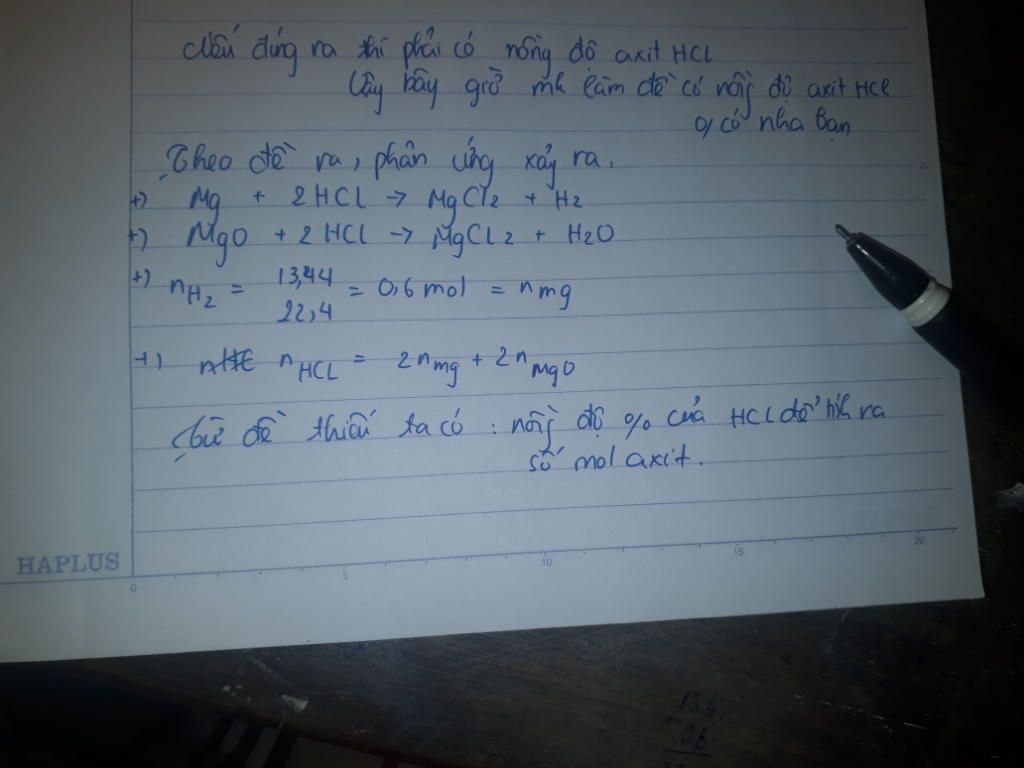 Nếu đúng ra thì phải có nồng độ axit HCl
Vậy bây giờ mk làm đề có nồng độ axit HCl
% có nha bạn
Theo đề ra, phản ứng xảy ra.
+) Mg + 2HCl → MgCl2 + H2
+) MgO + 2HCl → MgCl2 + H2O
+) nH2 = 13,44 / 22,4 = 0,6 mol = nmg
+) nHCL = 2nmg + 2nMgO
đề thiếu ta có : nồng độ % của HCl để tính ra
số mol axit.
HAPLUS
0 5 10 15 20